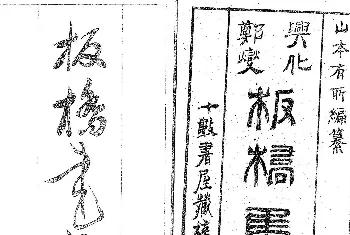 山本有所編纂
興化
鄭燮
板橋
十數書屋藏
板橋